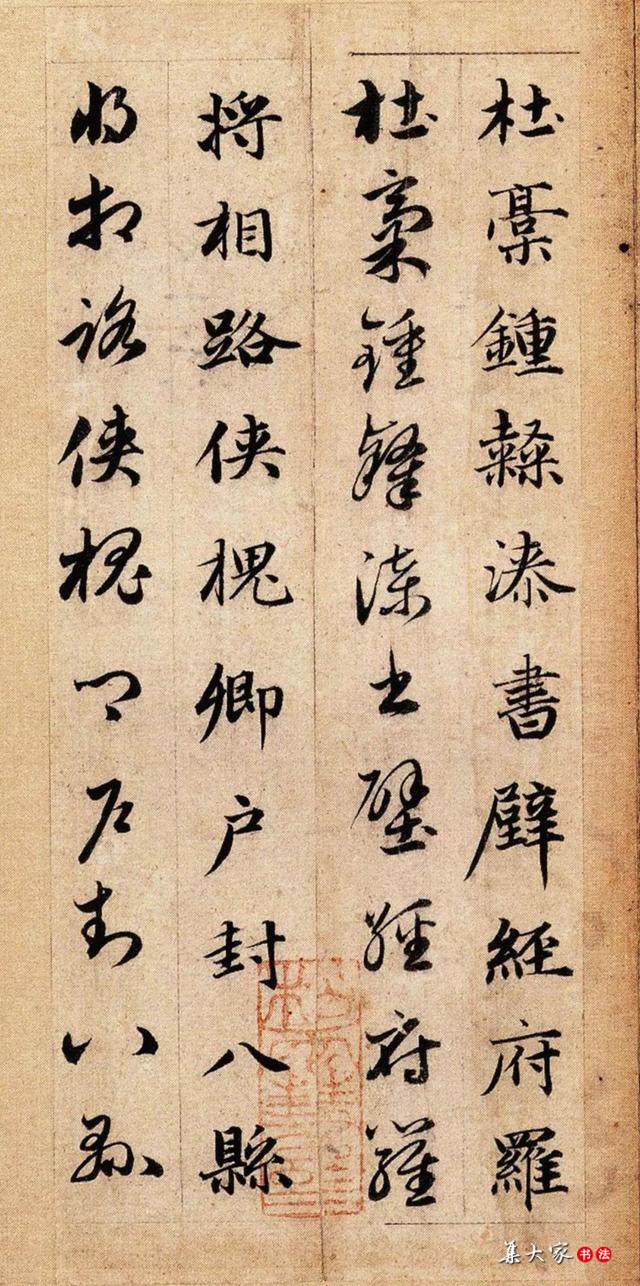 杜槀鍾隸漆書壁經府羅
杜槀鍾隸漆書壁經府羅
將相路俠槐卿户封八縣
將相路俠槐卿户封八縣
集大家书法